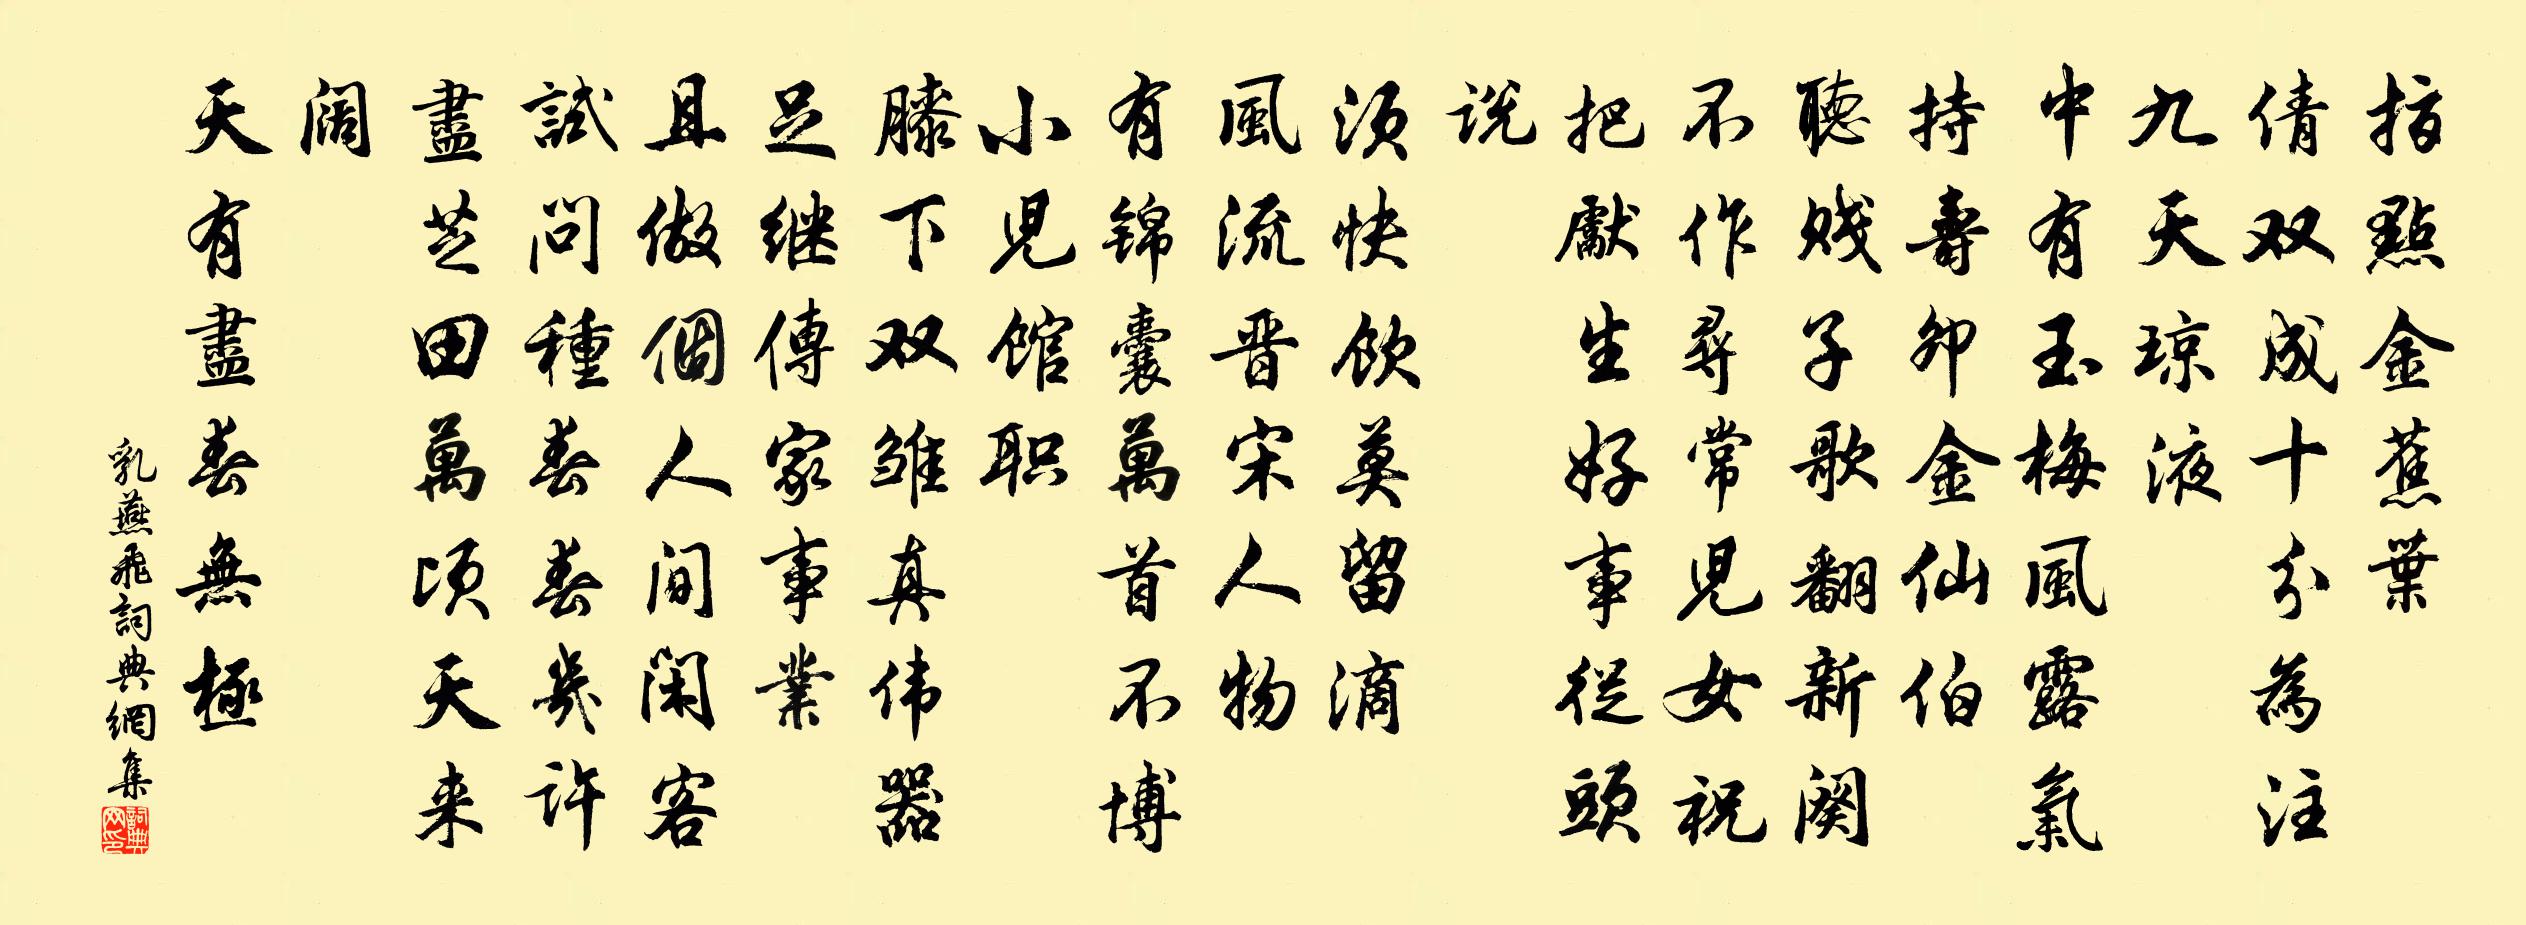 指點金蕉葉
倩双成十分為注
九天琼液
中有玉梅風露氣
持壽卯金仙伯
聽贱子歌翻新闋
不作尋常児女祝
把獻生好事從頭
說
須快飲莫留滴
風流晋宋人物
有錦囊萬首不博
小児館职
膝下双雏真伟器
足继傳家事業
且做個人間閑客
試問種春春幾許
盡芝田萬頃天来
闊
天有盡春無極
乳燕飛詞典網集
詞典网印